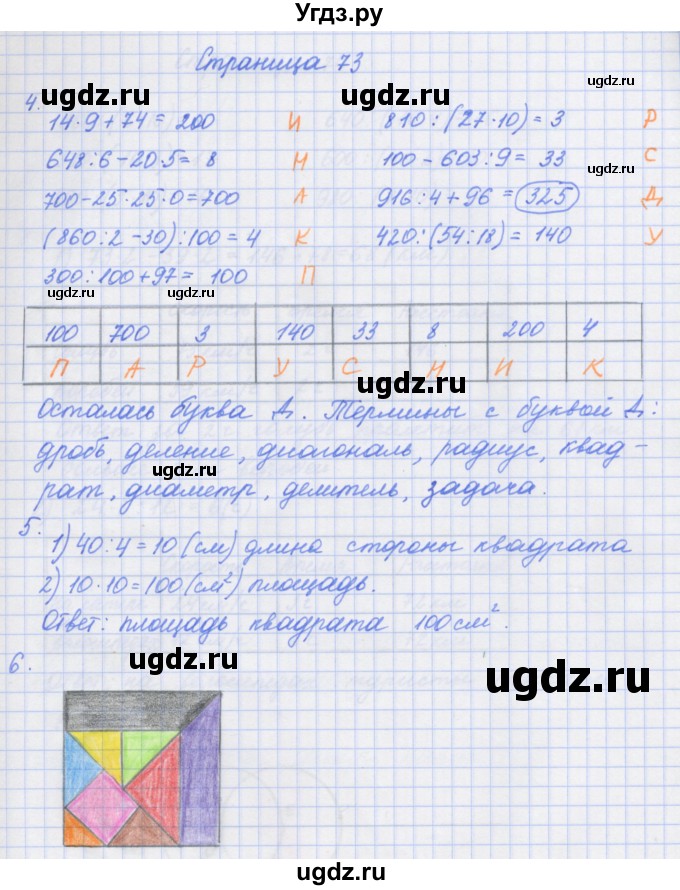 Угдз.ру
Страница 73
ugdz.ru
ugdz.ru
4.
14·9+74= 200 И 810:(27·10)= 3 Р
648:6-20·5= 8 Н 100-603:9= 33 С
ugdz.ru
700-25·25·0=700 А 916:4+96 = 325 Д
(860:2-30):100= 4 К 420:(54:18)= 140 У
300:100+97= 100 П
ugdz.ru
ugdz.ru
100 700 3 140 33 8 200 4
П А Р У С Н И К
Осталась буква Д. Термины с буквой Д:
дробь, деление, диагональ, радиус, квад-
ugdz.ru
рат, диаметр, делитель, задача.
5.
1) 40:4=10 (см) длина стороны квадрата
2) 10·10=100 (см²) площадь.
Ответ: площадь квадрата 100 см².
6.
ugdz.ru
ugdz.ru
ugdz.ru